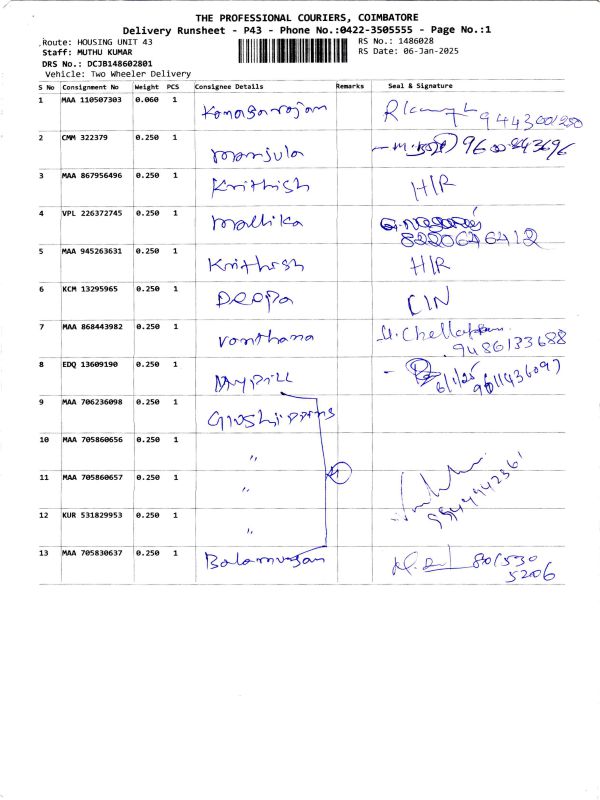 THE PROFESSIONAL COURIERS, COIMBATORE
Delivery Runsheet - P43 - Phone No.:0422-3505555 - Page No.:1
Route: HOUSING UNIT 43
RS No.: 1486028
Staff: MUTHU KUMAR
RS Date: 06-Jan-2025
DRS No.: DCJB148602801
Vehicle: Two Wheeler Delivery
S No Consignment No Weight PCS Consignee Details Remarks Seal & Signature
1 MAA 110507303 0.060 1 Kanagarajan 9443001250
2 CMM 322379 0.250 1 Manjula
3 MAA 867956496 0.250 1 Krithish H/R
4 VPL 226372745 0.250 1 Mallika 8220646412
5 MAA 945263631 0.250 1 Krithish H/R
6 KCM 13295965 0.250 1 Deepa CIN
7 MAA 868443982 0.250 1 Vanthana 9486133688
8 EDQ 13609190 0.250 1 Mypill 6/1/25
9 MAA 706236098 0.250 1
10 MAA 705860656 0.250 1 "
11 MAA 705860657 0.250 1 " 4
12 KUR 531829953 0.250 1 "
13 MAA 705830637 0.250 1 Balamurugan 801530
5206